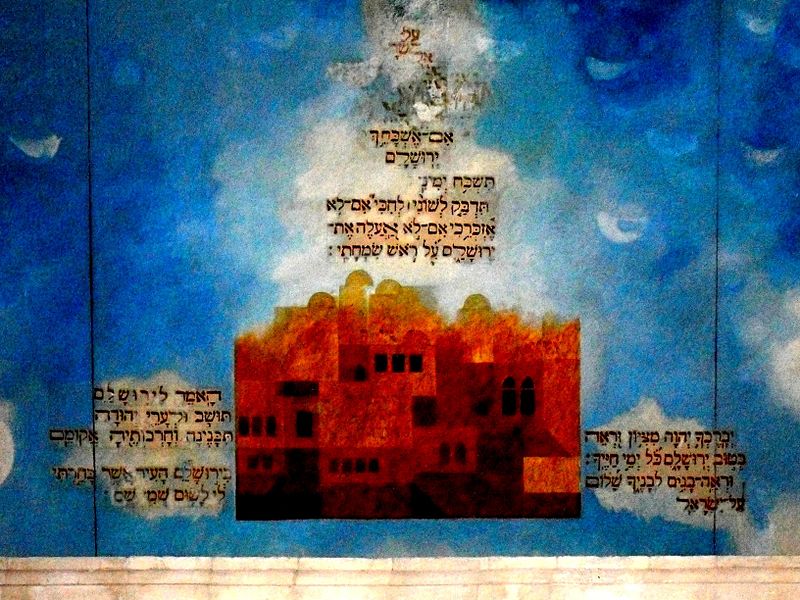 עַל
אִם־אֶשְׁכָּחֵךְ
יְרוּשָׁלִָם
תִּשְׁכַּח יְמִינִי׃
תִּדְבַּק לְשׁוֹנִי לְחִכִּי אִם־לֹא
אֶזְכְּרֵכִי אִם־לֹא אַעֲלֶה אֶת־
יְרוּשָׁלִַם עַל רֹאשׁ שִׂמְחָתִי׃
הָאֹמֵר לִירוּשָׁלִַם
תּוּשָׁב וּלְעָרֵי יְהוּדָה
תִּבָּנֶינָה וְחָרְבוֹתֶיהָ אֲקוֹמֵם
בִּירוּשָׁלִַם הָעִיר אֲשֶׁר בָּחַרְתִּי
לִי לָשׂוּם שְׁמִי שָׁם׃
יְבָרֶכְךָ יְהוָה מִצִּיּוֹן וּרְאֵה
בְּטוּב יְרוּשָׁלִָם כֹּל יְמֵי חַיֶּיךָ׃
וּרְאֵה־בָנִים לְבָנֶיךָ שָׁלוֹם
עַל־יִשְׂרָאֵל